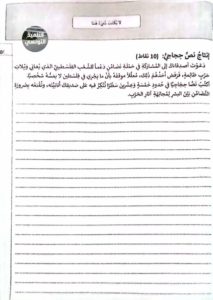 لا يكتب شيء هنا
التلميذ
التونسي
إنتاج نص حجاجي: (10 نقاط)
دعوت أصدقاءك إلى المشاركة في حملة تضامن دعما للشعب الفلسطيني الذي يعاني ويلات
حرب ظالمة، فرفض أحدهم ذلك، معللا موقفه بأن ما يجري في فلسطين لا يمسه شخصيا.
اكتب نصا حجاجيا في حدود خمسة وعشرين سطرا تنكر فيه على صديقك أنانيته، وتقنعه بضرورة
التضامن بين البشر لمجابهة آثار الحرب.